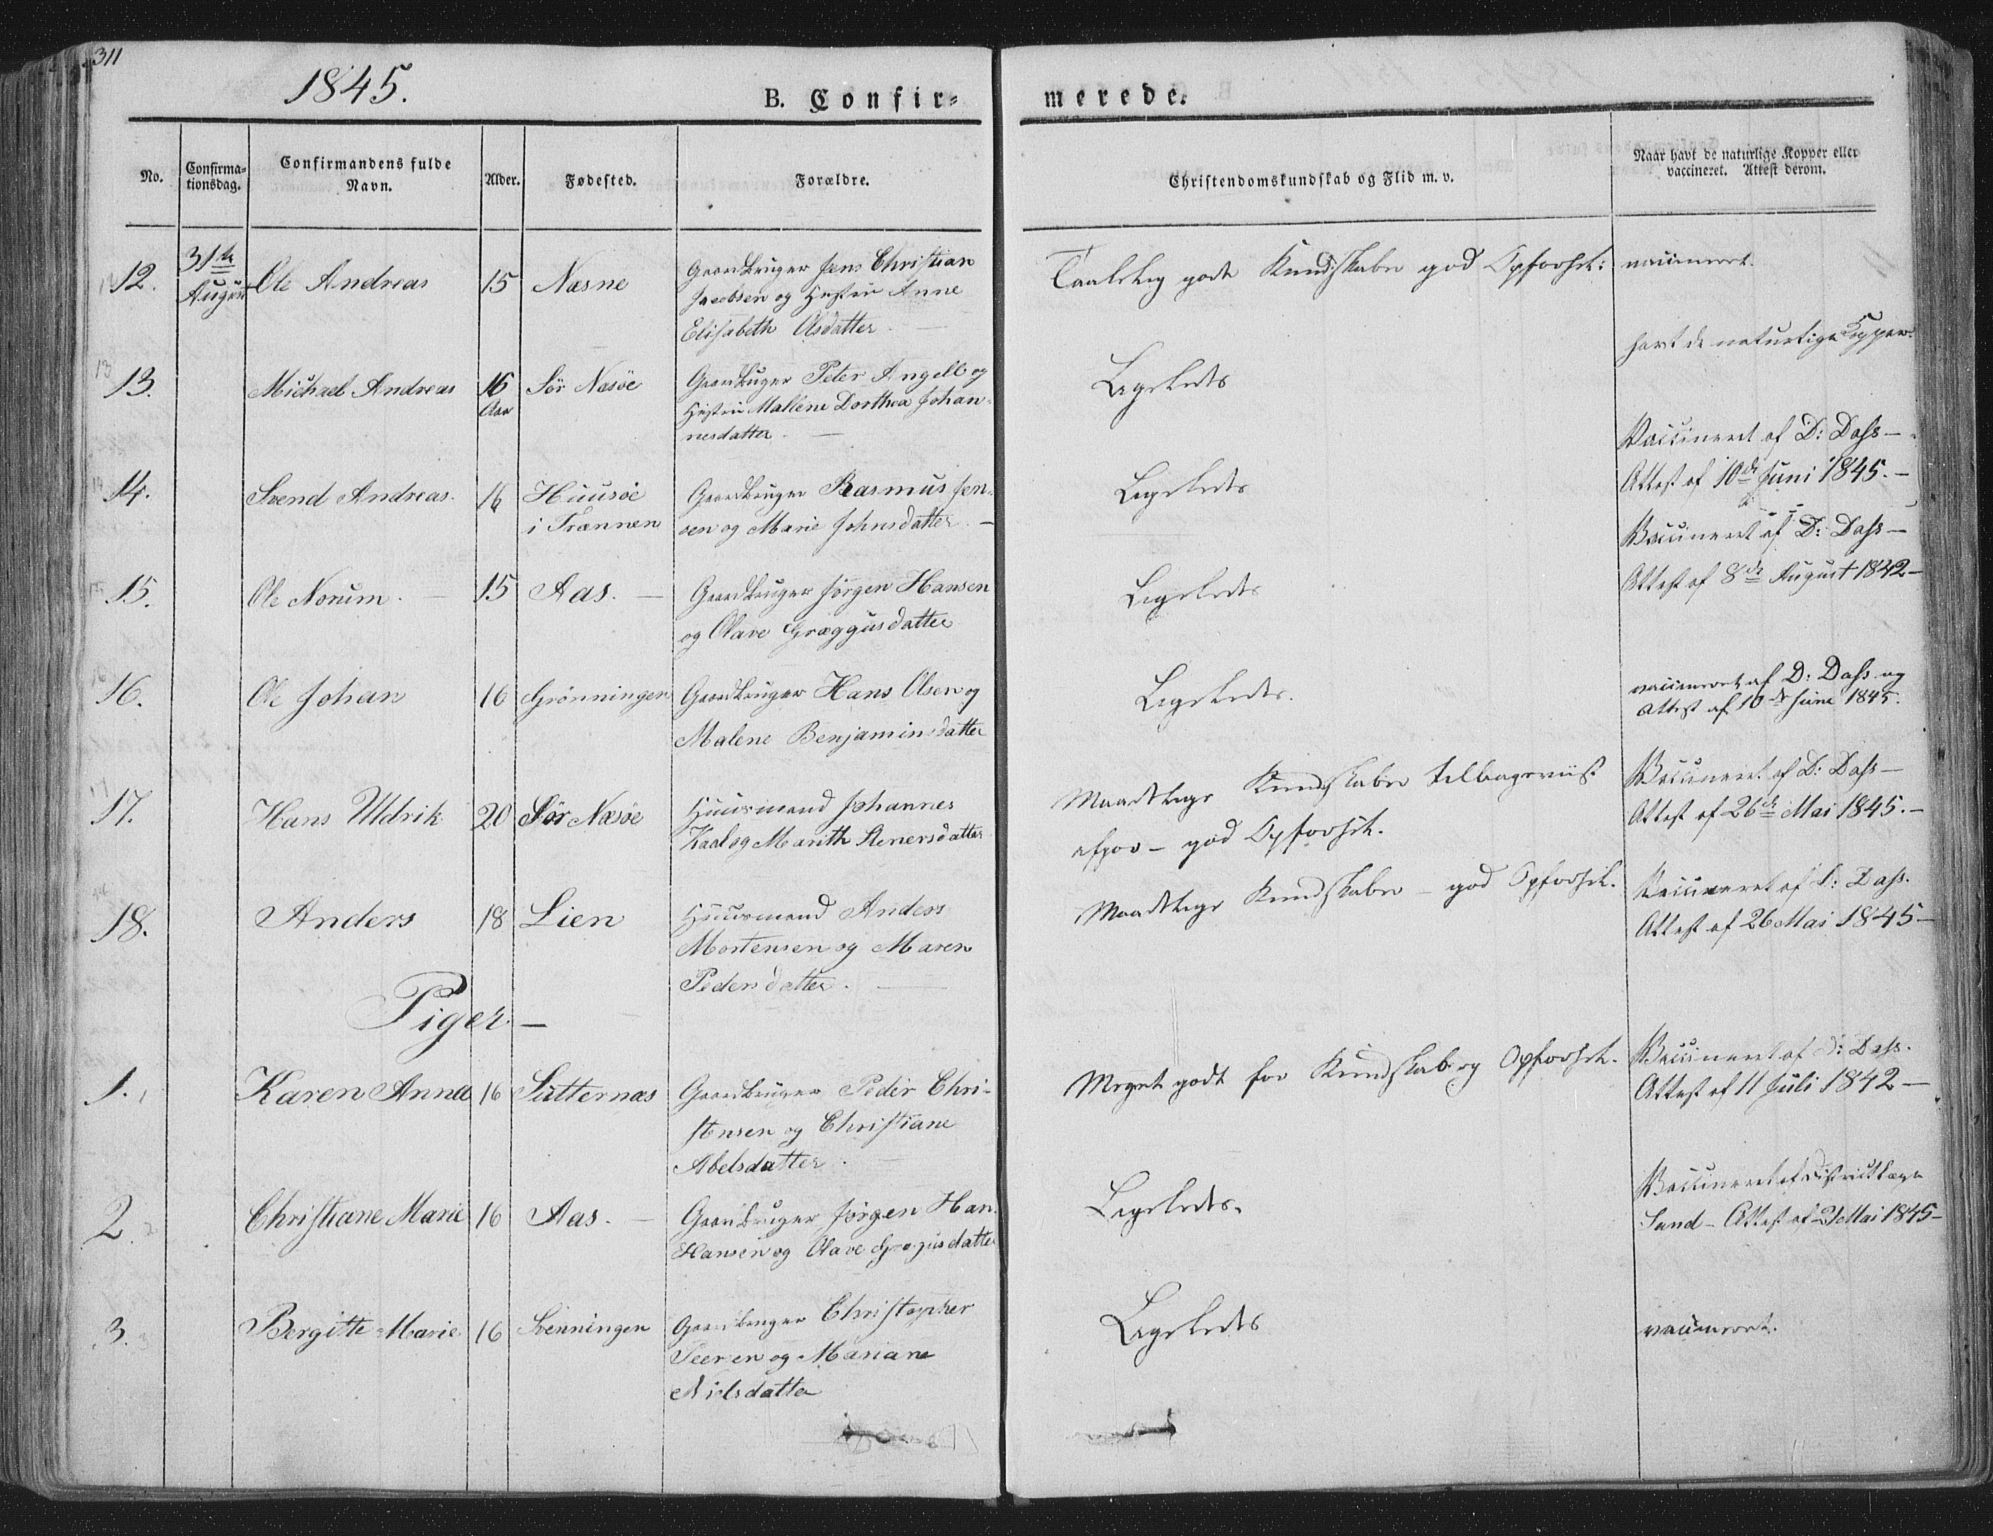 311
1845.
B. Confir-
merede.
No.
Confirma-
tionsdag.
Confirmandens fulde
Navn.
Alder.
Fødested.
Forældre.
Christendomskundskab og Flid m. v.
Naar havt de naturlige Kopper eller
vaccineret. Attest derom.
12.
31te
August
Ole Andreas
15
Næsne
Gaardbruger Jens Christian
Jacobsen og Hustru Anne
Elisabeth Olsdatter
Taalelig gode Kundskaber god Opførsel:
vaccineret.
13.
Michael Andreas
16
Aar
Sør Næsøe
Gaardbruger Peter Angell og
Hustru Mallene Dorthea Johan-
nesdatter
Ligeledes
havt de naturlige Kopper.
14.
Svend Andreas
16
Huusøe
i Trænnen
Gaardbruger Rasmus Jen-
sen og Marie Johnsdatter
Ligeledes
Vaccineret af D: Dass —
Attest af 10de Juni 1845. —
15.
Ole Norum
15
Aas. —
Gaardbruger Jørgen Hansen
og Olave Græggusdatter
Ligeledes
Vaccineret af D: Dass —
Attest af 8de August 1842 —
16.
Ole Johan
16
Grønningen
Gaardbruger Hans Olsen og
Malene Benjaminsdatter
Ligeledes.
vaccineret af D: Dass og
Attest af 10de Juni 1845.
17.
Hans Uldrik
20
Sør Næsøe
Huusmand Johannes
Kaal og Marith Stenersdatter
Maadelige Kundskaber tilbageviist
efpor — god Opførsel.
Vaccineret af D: Dass —
Attest af 26de Mai 1845. —
18.
Anders
18
Lien
Huusmand Anders
Mortensen og Maren
Pedersdatter.
Maadelige Kundskaber — god Opførsel.
Vaccineret af D: Dass.
Attest af 26 Mai 1845 —
Piger. —
1.
Karen Anna
16
Sütternæs
Gaardbruger Peder Chri-
stensen og Christiane
Abelsdatter.
Meget godt for Kundskab og Opførsel.
Vaccineret af D: Dass.
Attest af 11 Juli 1842 —
2.
Christiane Marie
16
Aas. —
Gaardbruger Jørgen Han
Hansen og Olave Gregusdatter
Ligeledes.
Vaccineret af Districtslæge
Sand — Attest af 21 Mai 1845 —
3.
Bergitte Marie
16
Svenningen
Gaardbruger Christopher
Peersen og Mariane
Nielsdatter
Ligeledes
vaccineret.